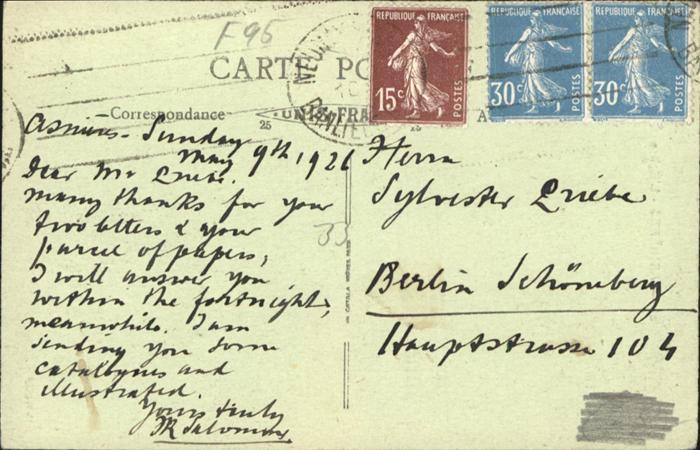 F95
CARTE PO
RÉPUBLIQUE FRANÇAISE
15c
POSTES
RÉPUBLIQUE FRANÇAISE
30c
POSTES
RÉPUBLIQUE FRANÇAISE
30c
POSTES
Correspondance
25
25
A
Asnières - Sunday
May 9th 1926
Dear Mr Priebe.
many thanks for your
two letters & your
parcel of papers,
I will answer you
within the fortnight,
meanwhile. I am
sending you some
catalogues and
illustrated.
Yours truly
Salomon
33
Herrn
Sylvester Priebe
Berlin Schöneberg
Hauptstrasse 104